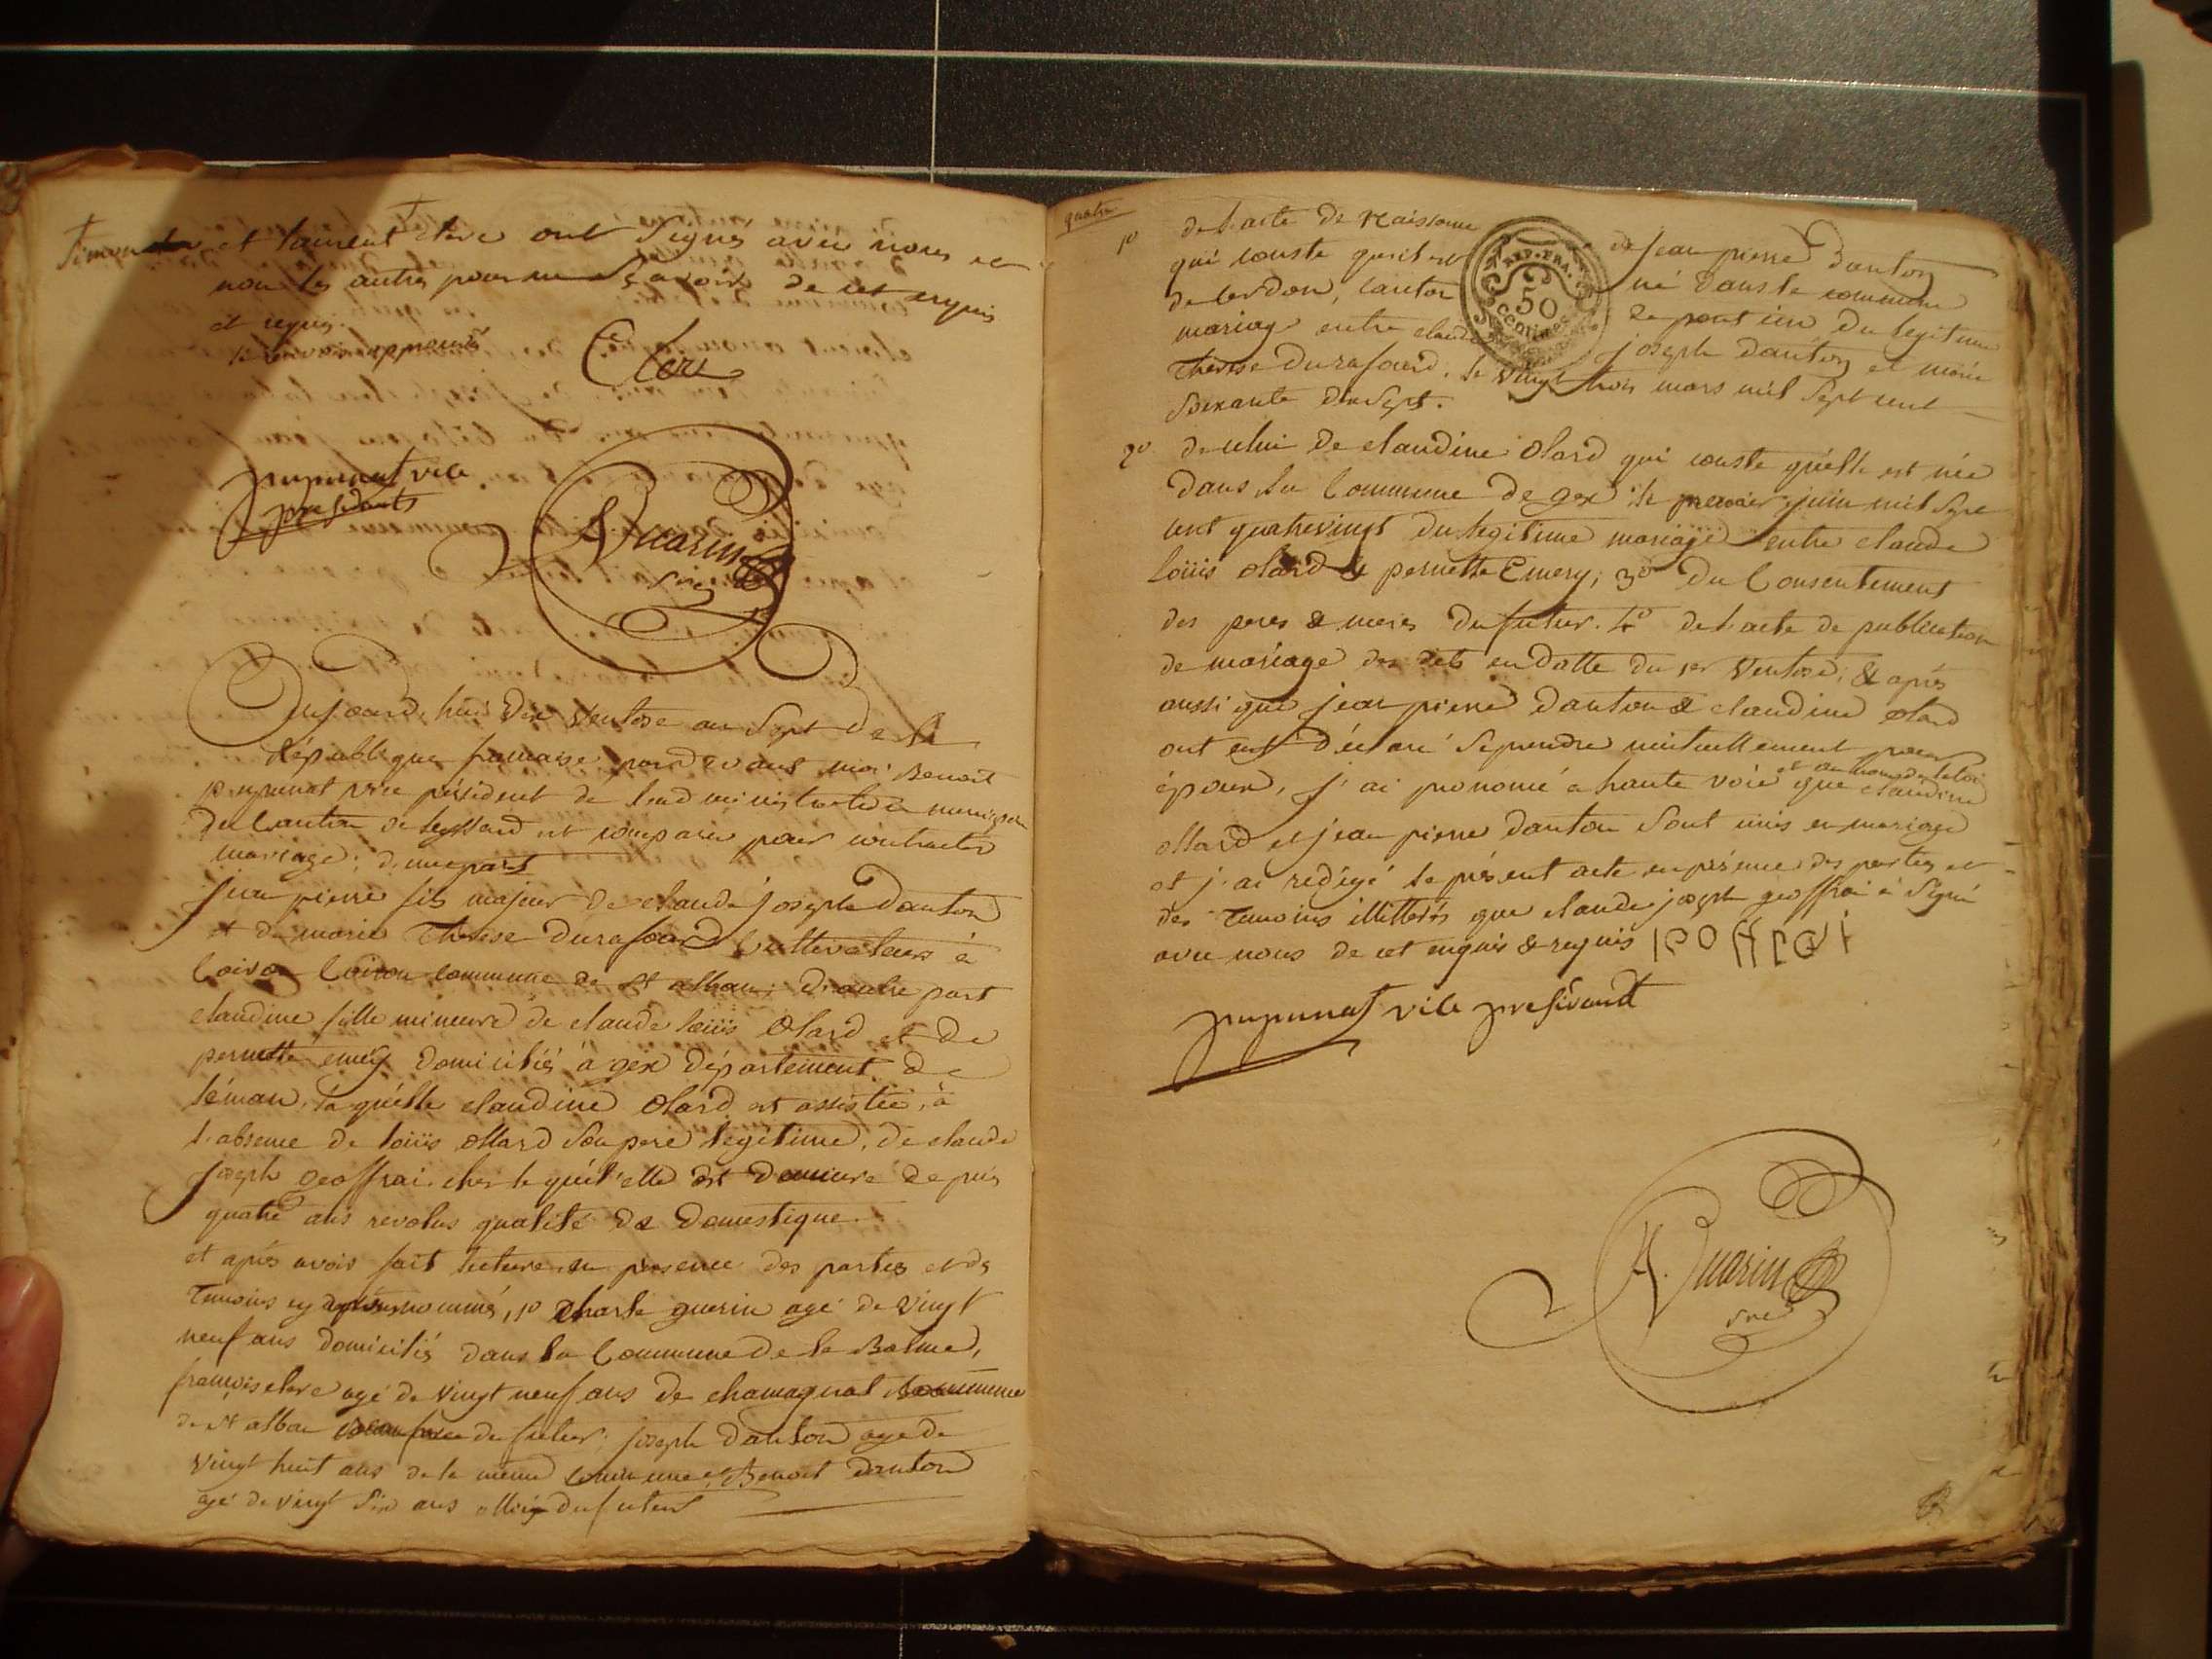 Témoins et laurent clerc ont Signés avec nous et
non les autres pour ne Sçavoir de cet enquis
et requis.
le renvois approuvé
Clerc
pupunat vice
president
A. Guarin
Sre
Aujourd'hui dix Ventose an Sept de la
République francaise, pardevant moi Benoit
pupunat vice président de l'administration municipale
du Canton de leyssard est comparu pour contracter
mariage; d'une part
jean pierre fils majeur de claude joseph Danton
et de marie Therese Durafourd Cultivateurs à
Coiron Coiron commune de St alban; d'autre part
claudine fille mineure de claude loüis Olard et de
pernette emery domiciliés à gex département de
léman, la quélle claudine Olard est assistée, à
l'absence de loüis ollard Son pere legitime, de claude
joseph geoffrai chez le quél elle est demeuré depuis
quatre ans revolus qualité de domestique.
et après avoir fait lecture en presence des parties et des
Temoins cy après nommés, 1º charle guerin agé de vingt
neuf ans domicilié dans la Commune de la Balme,
francois clerc agé de vingt neuf ans de chamagnat commune
de St alban beaufrere du futur; joseph danton agé de
vingt huit ans de la meme commune, et Benoit danton
agé de vingt Six ans du futur
quatre
1º de l'acte de Naissance de jean pierre danton
qui conste qu'il est né dans la commune
de Cerdon, canton de pont din du legitime
mariage entre claude joseph danton et marie
Therese Durafourd, le vingt trois mars mil Sept cent
Soixante dix Sept.
REP. FRA.
50
centimes
2º de celui de claudine Olard qui conste qu'elle est née
dans la Commune de gex le premier juin mil Sept
cent quatrevingt du legitime mariage entre claude
loüis olard & pernette Emery; 3º du Consentement
des peres & meres du futur. 4º de l'acte de publication
de mariage des dits en datte du 1er Ventose; & après
aussi que jean pierre Danton & claudine olard
ont eus déclaré Se prendre mutuellement pour
époux, j'ai prononcé a haute voie et au nom de la loi que claudine
ollard et jean pierre danton Sont unis en mariage
et j'ai rédigé le présent acte en présence des parties et
des Temoins illitterés que claude joseph geoffrai à Signé
avec nous de cet enquis & requis joffrai
pupunat vice president
A. Guarin
Sre